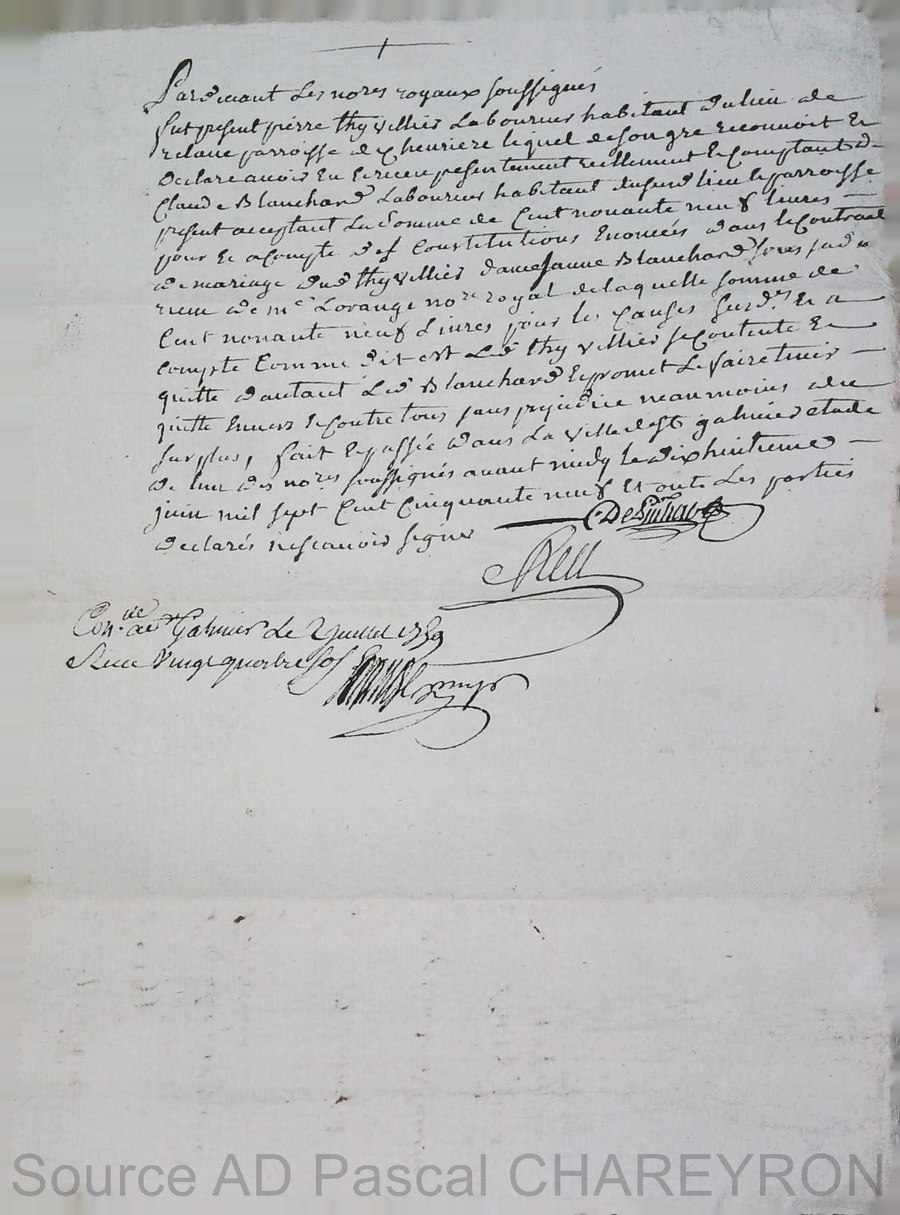 Pardevant Les nores royaux soussignés
fut present pierre thyvillier Laboureur habitant du lieu de
parroisse de Cheuriere lequel de son gre reconnoit Et
declare avoir Eu Et receu presentement reellement Et comptant de
Claude Blanchard Laboureur habitant dususd lieu Et parroisse
present acceptant La Somme de Cent nonante neuf Livres —
pour Et acompte des Constitutions Enoncées dans Le Contrait
de mariage dud thyvillier dame Janne Blanchard Soeur jadis
receu de me Lorange nore royal de laquelle somme de
Cent nonante neuf Livres pour les Causes Susd.es Et a
compte Comme dit est Led thyvillier Se Contente Et
quitte d'autant Led Blanchard Et promet Le faire tenir —
quitte Envers Et Contre tous sans prejudice neanmoins du
surplus, fait Et passée dans La Ville de St galmier etude
de l'un des nores soussignés avant midy le dix huitieme —
juin mil sept Cent Cinquante neuf Et ont Les parties
declarés ne scavoir signer
Rell
Con.lle a St Galmier Le 2 juillet 1759
Receu Vingt quatre sols
Source AD Pascal CHAREYRON